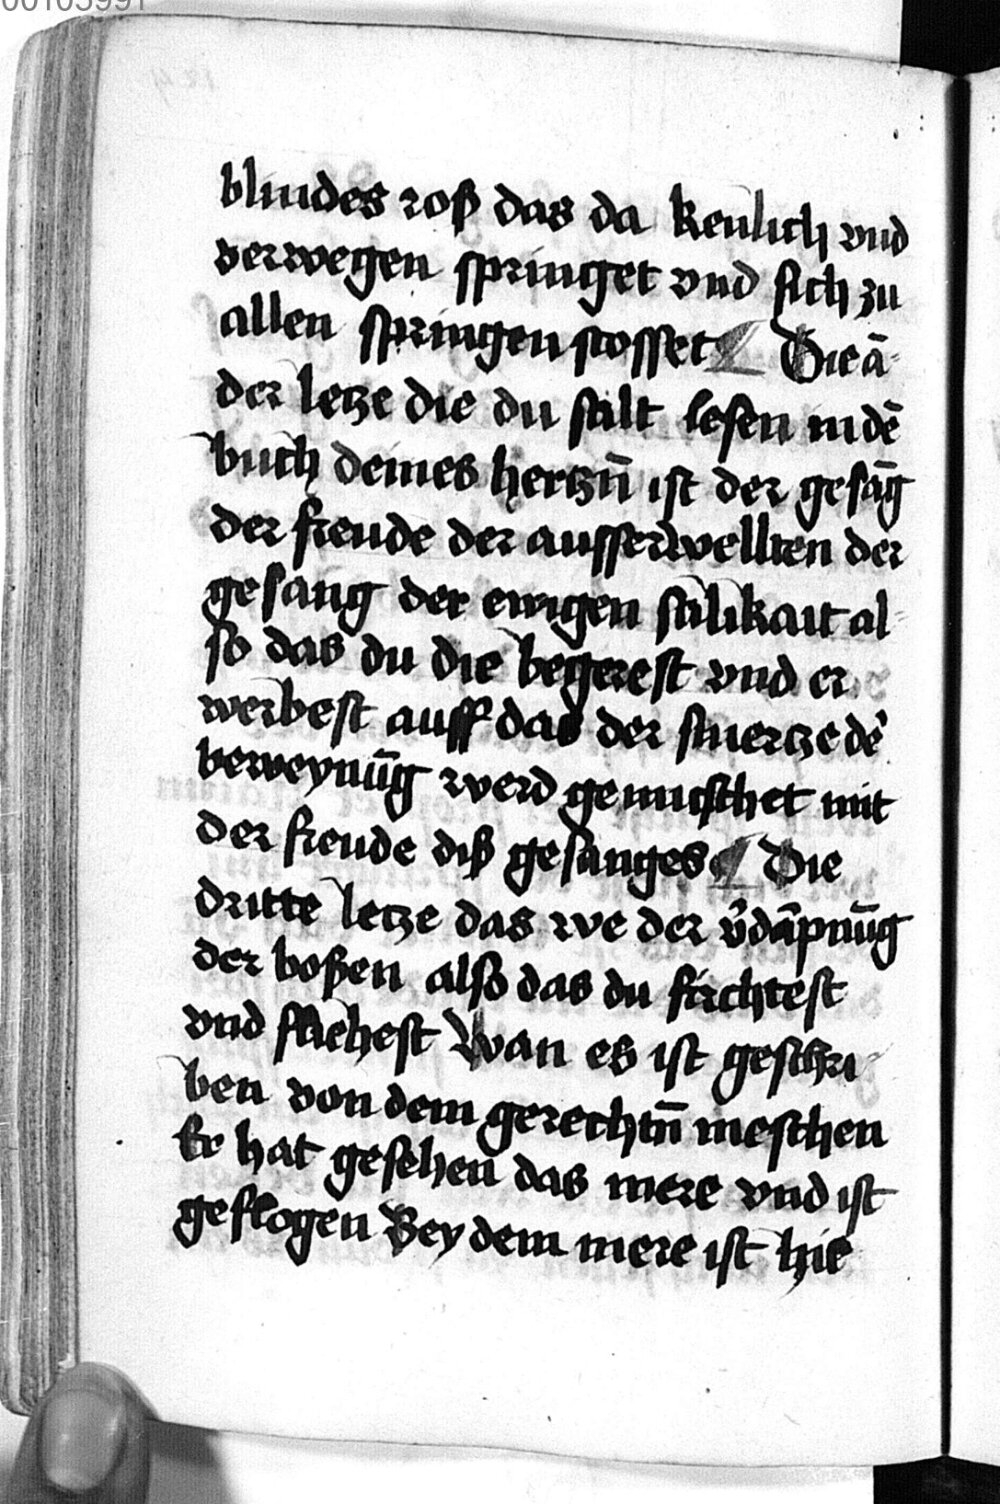 00103991
blindes roß das da kenlich vnd
verwegen springet vnd sich zu
allen springen stosset ¶ Die ā-
der letze die du salt lesen in dē
buch deines hertzn̄ ist der gesāg
der freude der ausserwellten der
gesang der ewigen sälikait al-
so das du die begerest vnd er
werbest auff das der smertze de᷑
beweynūg werd gemischet mit
der freude diß gesanges ¶ Die
dritte letze das we der v̄dāpnūg
der boßen also das du fürchtest
vnd fliehest Wan es ist geschri
ben von dem gerechtn̄ meschen
Er hat gesehen das mere vnd ist
geflogen Bey dem mere ist hie